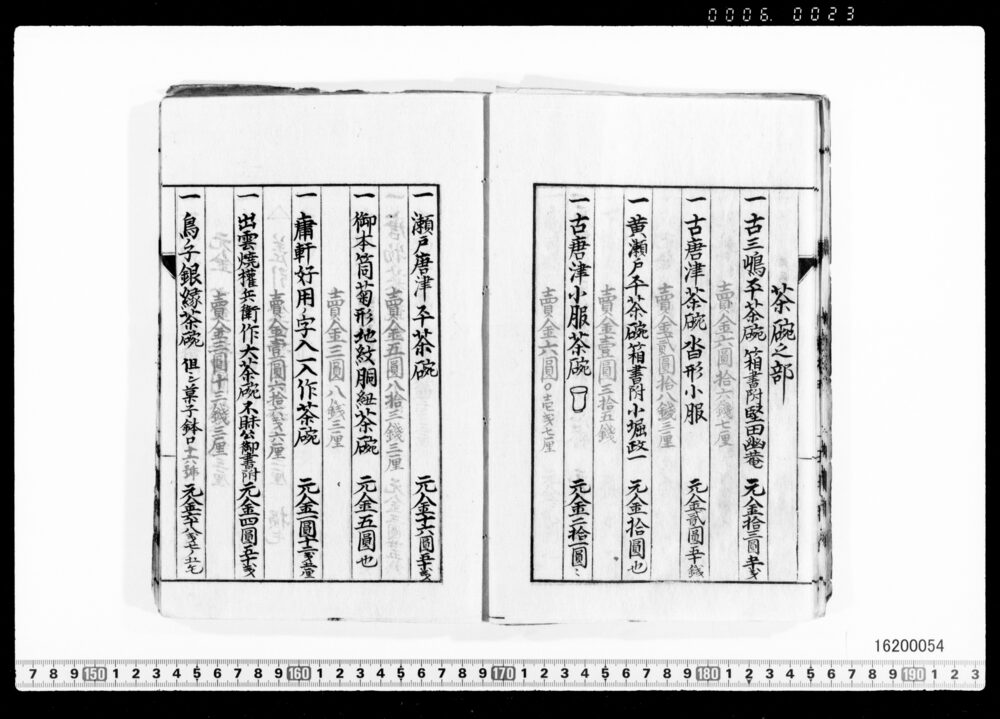 0006. 0023
茶碗之部
一 古三嶋平茶碗 箱書附堅田幽菴 元金拾三圓
賣金六圓拾六錢七厘
一 古唐津茶碗 沓形小服 元金貳圓五十錢
賣金貳圓拾八錢三厘
一 黄瀬戸平茶碗 箱書附小堀政一 元金拾圓也
賣金壹圓三拾五錢
一 古唐津小服茶碗 元金二拾一圓
賣金六圓
一 瀬戸唐津平茶碗 元金十六圓五十戋
賣金五圓八拾三錢三厘
一 御本筒菊形地紋胴紐茶碗 元金五圓也
賣金三圓八錢三厘
一 庸軒好用ノ字入一入作茶碗 元金一圓十二戋五厘
賣金壹圓六拾六戋六厘
一 出雲燒權兵衛作大茶碗不昧公御書附 元金四圓五十戋
賣金三圓十三錢三厘
一 鳥子銀縁茶碗 但シ菓子鉢口 十六號
16200054
7 8 9 150 1 2 3 4 5 6 7 8 9 160 1 2 3 4 5 6 7 8 9 170 1 2 3 4 5 6 7 8 9 180 1 2 3 4 5 6 7 8 9 190 1 2 3